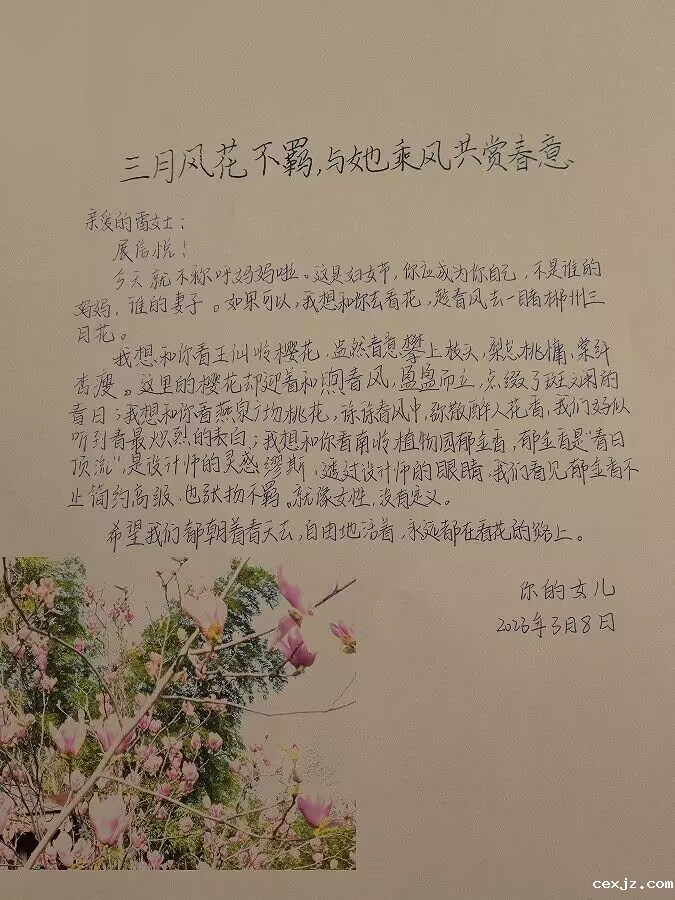 三月风花不羁,与她乘风共赏春意
亲爱的雷女士：
展信悦！
今天就不称呼妈妈啦。这是妇女节，你应成为你自己，不是谁的
妈妈，谁的妻子。如果可以，我想和你去看花，趁春风去一睹郴州三
月花。
我想和你看王仙岭樱花，盎然春意攀上枝头，梨怠桃慵，棠纤
杏瘦。这里的樱花却迎着和煦春风，盈盈而立，点缀了斑斓的
春日；我想和你看燕泉广场桃花，徐徐春风中，弥散醉人花香，我们好似
听到春最炽烈的表白；我想和你看南岭植物园郁金香，郁金香是“春日
顶流”，是设计师的灵感缪斯，透过设计师的眼睛，我们看见郁金香不
止简约高级，也张扬不羁。就像女性，没有定义。
希望我们都朝着春天去，自由地活着，永远都在看花的路上。
你的女儿
2023年3月8日
cexjz.com